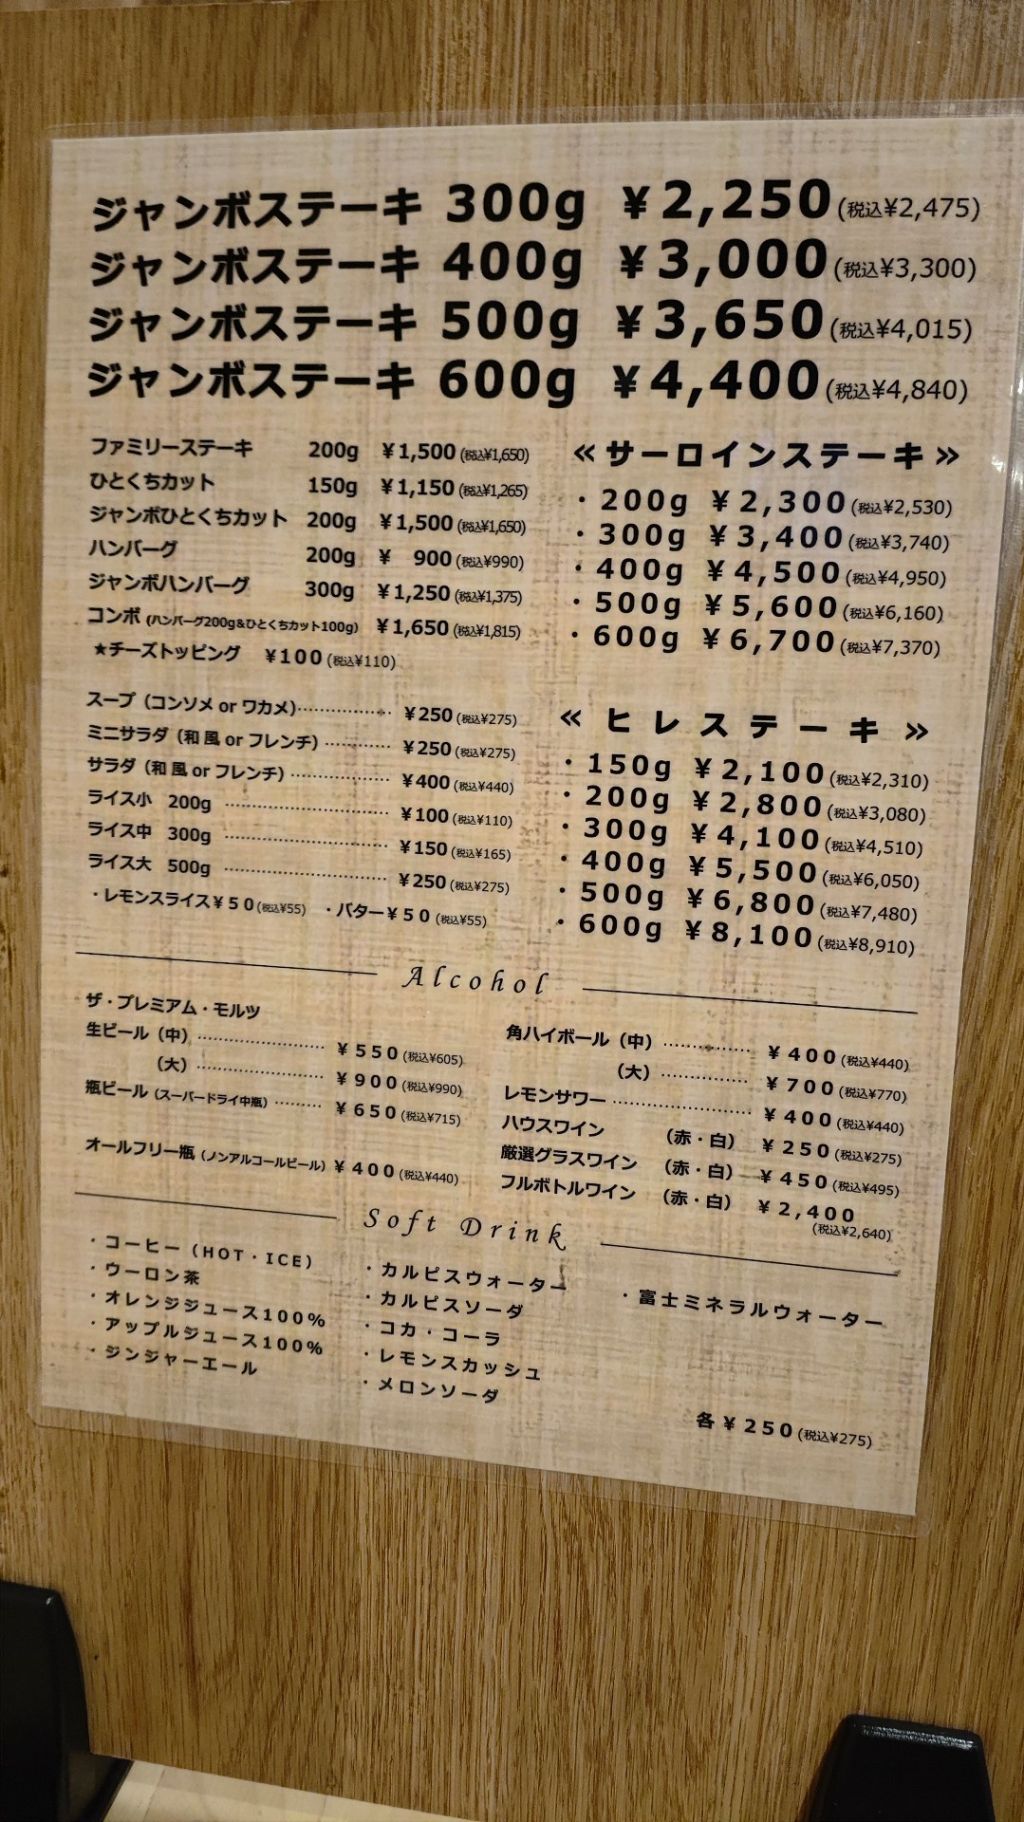 ジャンボステーキ 300g ¥2,250(税込¥2,475)
ジャンボステーキ 400g ¥3,000(税込¥3,300)
ジャンボステーキ 500g ¥3,650(税込¥4,015)
ジャンボステーキ 600g ¥4,400(税込¥4,840)
ファミリーステーキ 200g ¥1,500(税込¥1,650)
ひとくちカット 150g ¥1,150(税込¥1,265)
ジャンボひとくちカット 200g ¥1,500(税込¥1,650)
ハンバーグ 200g ¥ 900(税込¥990)
ジャンボハンバーグ 300g ¥1,250(税込¥1,375)
コンボ(ハンバーグ200g&ひとくちカット100g) ¥1,650(税込¥1,815)
★チーズトッピング ¥100(税込¥110)
≪サーロインステーキ≫
・200g ¥2,300(税込¥2,530)
・300g ¥3,400(税込¥3,740)
・400g ¥4,500(税込¥4,950)
・500g ¥5,600(税込¥6,160)
・600g ¥6,700(税込¥7,370)
スープ(コンソメ or ワカメ)………… ¥250(税込¥275)
ミニサラダ(和風 or フレンチ)………… ¥250(税込¥275)
サラダ(和風 or フレンチ)………… ¥400(税込¥440)
ライス小 200g ………… ¥100(税込¥110)
ライス中 300g ………… ¥150(税込¥165)
ライス大 500g ………… ¥250(税込¥275)
・レモンスライス¥50(税込¥55) ・バター¥50(税込¥55)
≪ヒレステーキ≫
・150g ¥2,100(税込¥2,310)
・200g ¥2,800(税込¥3,080)
・300g ¥4,100(税込¥4,510)
・400g ¥5,500(税込¥6,050)
・500g ¥6,800(税込¥7,480)
・600g ¥8,100(税込¥8,910)
Alcohol
ザ・プレミアム・モルツ
生ビール(中)………… ¥550(税込¥605)
(大)………… ¥900(税込¥990)
瓶ビール(スーパードライ中瓶)……… ¥650(税込¥715)
オールフリー瓶(ノンアルコールビール) ¥400(税込¥440)
角ハイボール(中)………… ¥400(税込¥440)
(大)………… ¥700(税込¥770)
レモンサワー………… ¥400(税込¥440)
ハウスワイン (赤・白) ¥250(税込¥275)
厳選グラスワイン (赤・白) ¥450(税込¥495)
フルボトルワイン (赤・白) ¥2,400
(税込¥2,640)
Soft Drink
・コーヒー(HOT・ICE)
・ウーロン茶
・オレンジジュース100%
・アップルジュース100%
・ジンジャーエール
・カルピスウォーター
・カルピスソーダ
・コカ・コーラ
・レモンスカッシュ
・メロンソーダ
・富士ミネラルウォーター
各¥250(税込¥275)